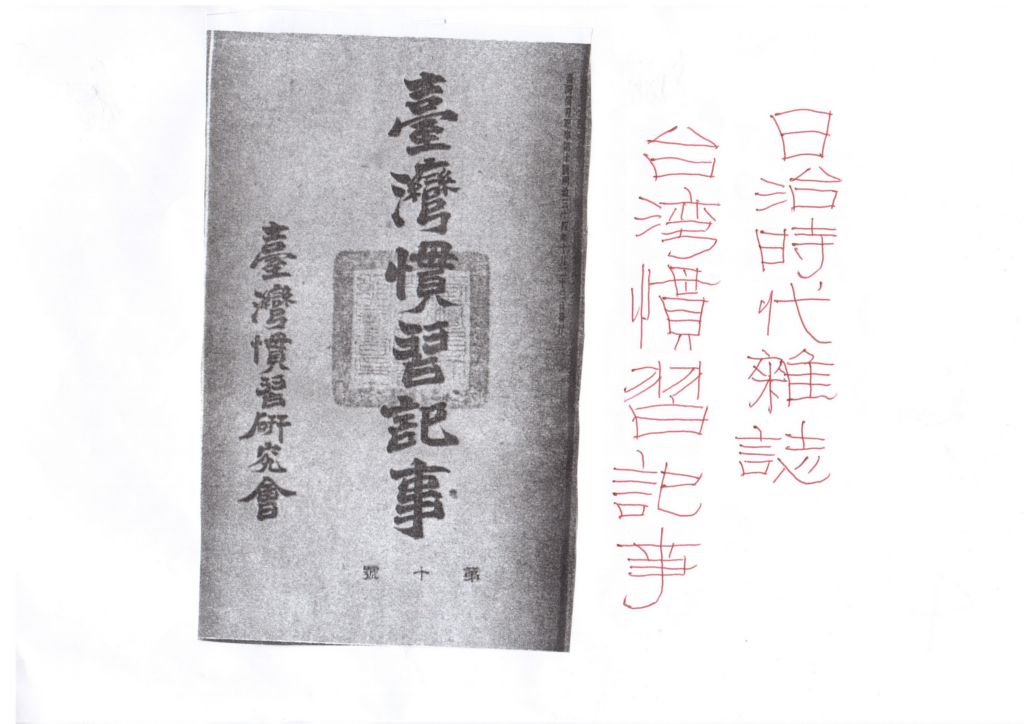 日治時代雜誌
台湾慣習記事
臺灣慣習記事
臺灣慣習研究會
第十號